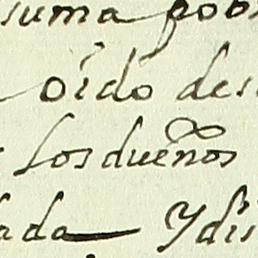 suma pob
oido des
los dueños
ada Y dis